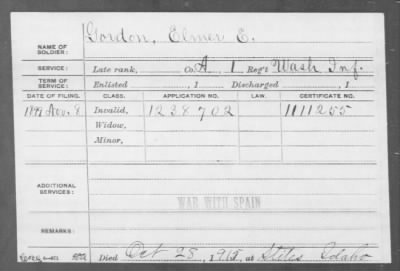 NAME OF SOLDIER: Gordon, Elmer E.
SERVICE: Late rank, Co. A, 1 Reg't Wash Inf.
TERM OF SERVICE: Enlisted , 1 Discharged , 1
DATE OF FILING. CLASS. APPLICATION NO. LAW. CERTIFICATE NO.
1899 Nov. 8 Invalid, 1238702 1111255
Widow,
Minor,
ADDITIONAL SERVICES:
WAR WITH SPAIN
REMARKS:
Died Oct 28, 1915, at Idaho